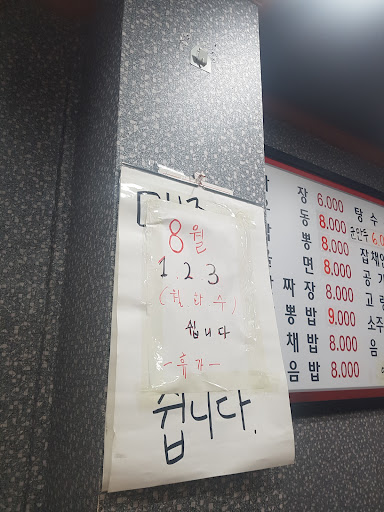 8월
1.2.3
(월화수)
쉽니다
-휴가-
쉽니다.
장 6.000 탕수
동 8.000 군만두 6.0
뽕 8.000 잡채
면 8.000 공기
짜장 8.000 고량
뽕밥 9.000 소주
채밥 8.000 음
음밥 8.000